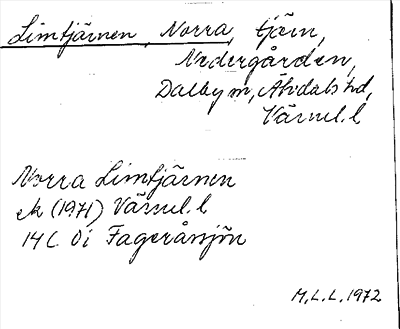 Limtjärnen, Norra, tjärn,
Nedergården,
Dalby sn, Älvdals hd,
Värml. l
Norra Limtjärnen
ek (1971) Värml. l
14 C 0i Fageråsjön
M.L.L. 1972